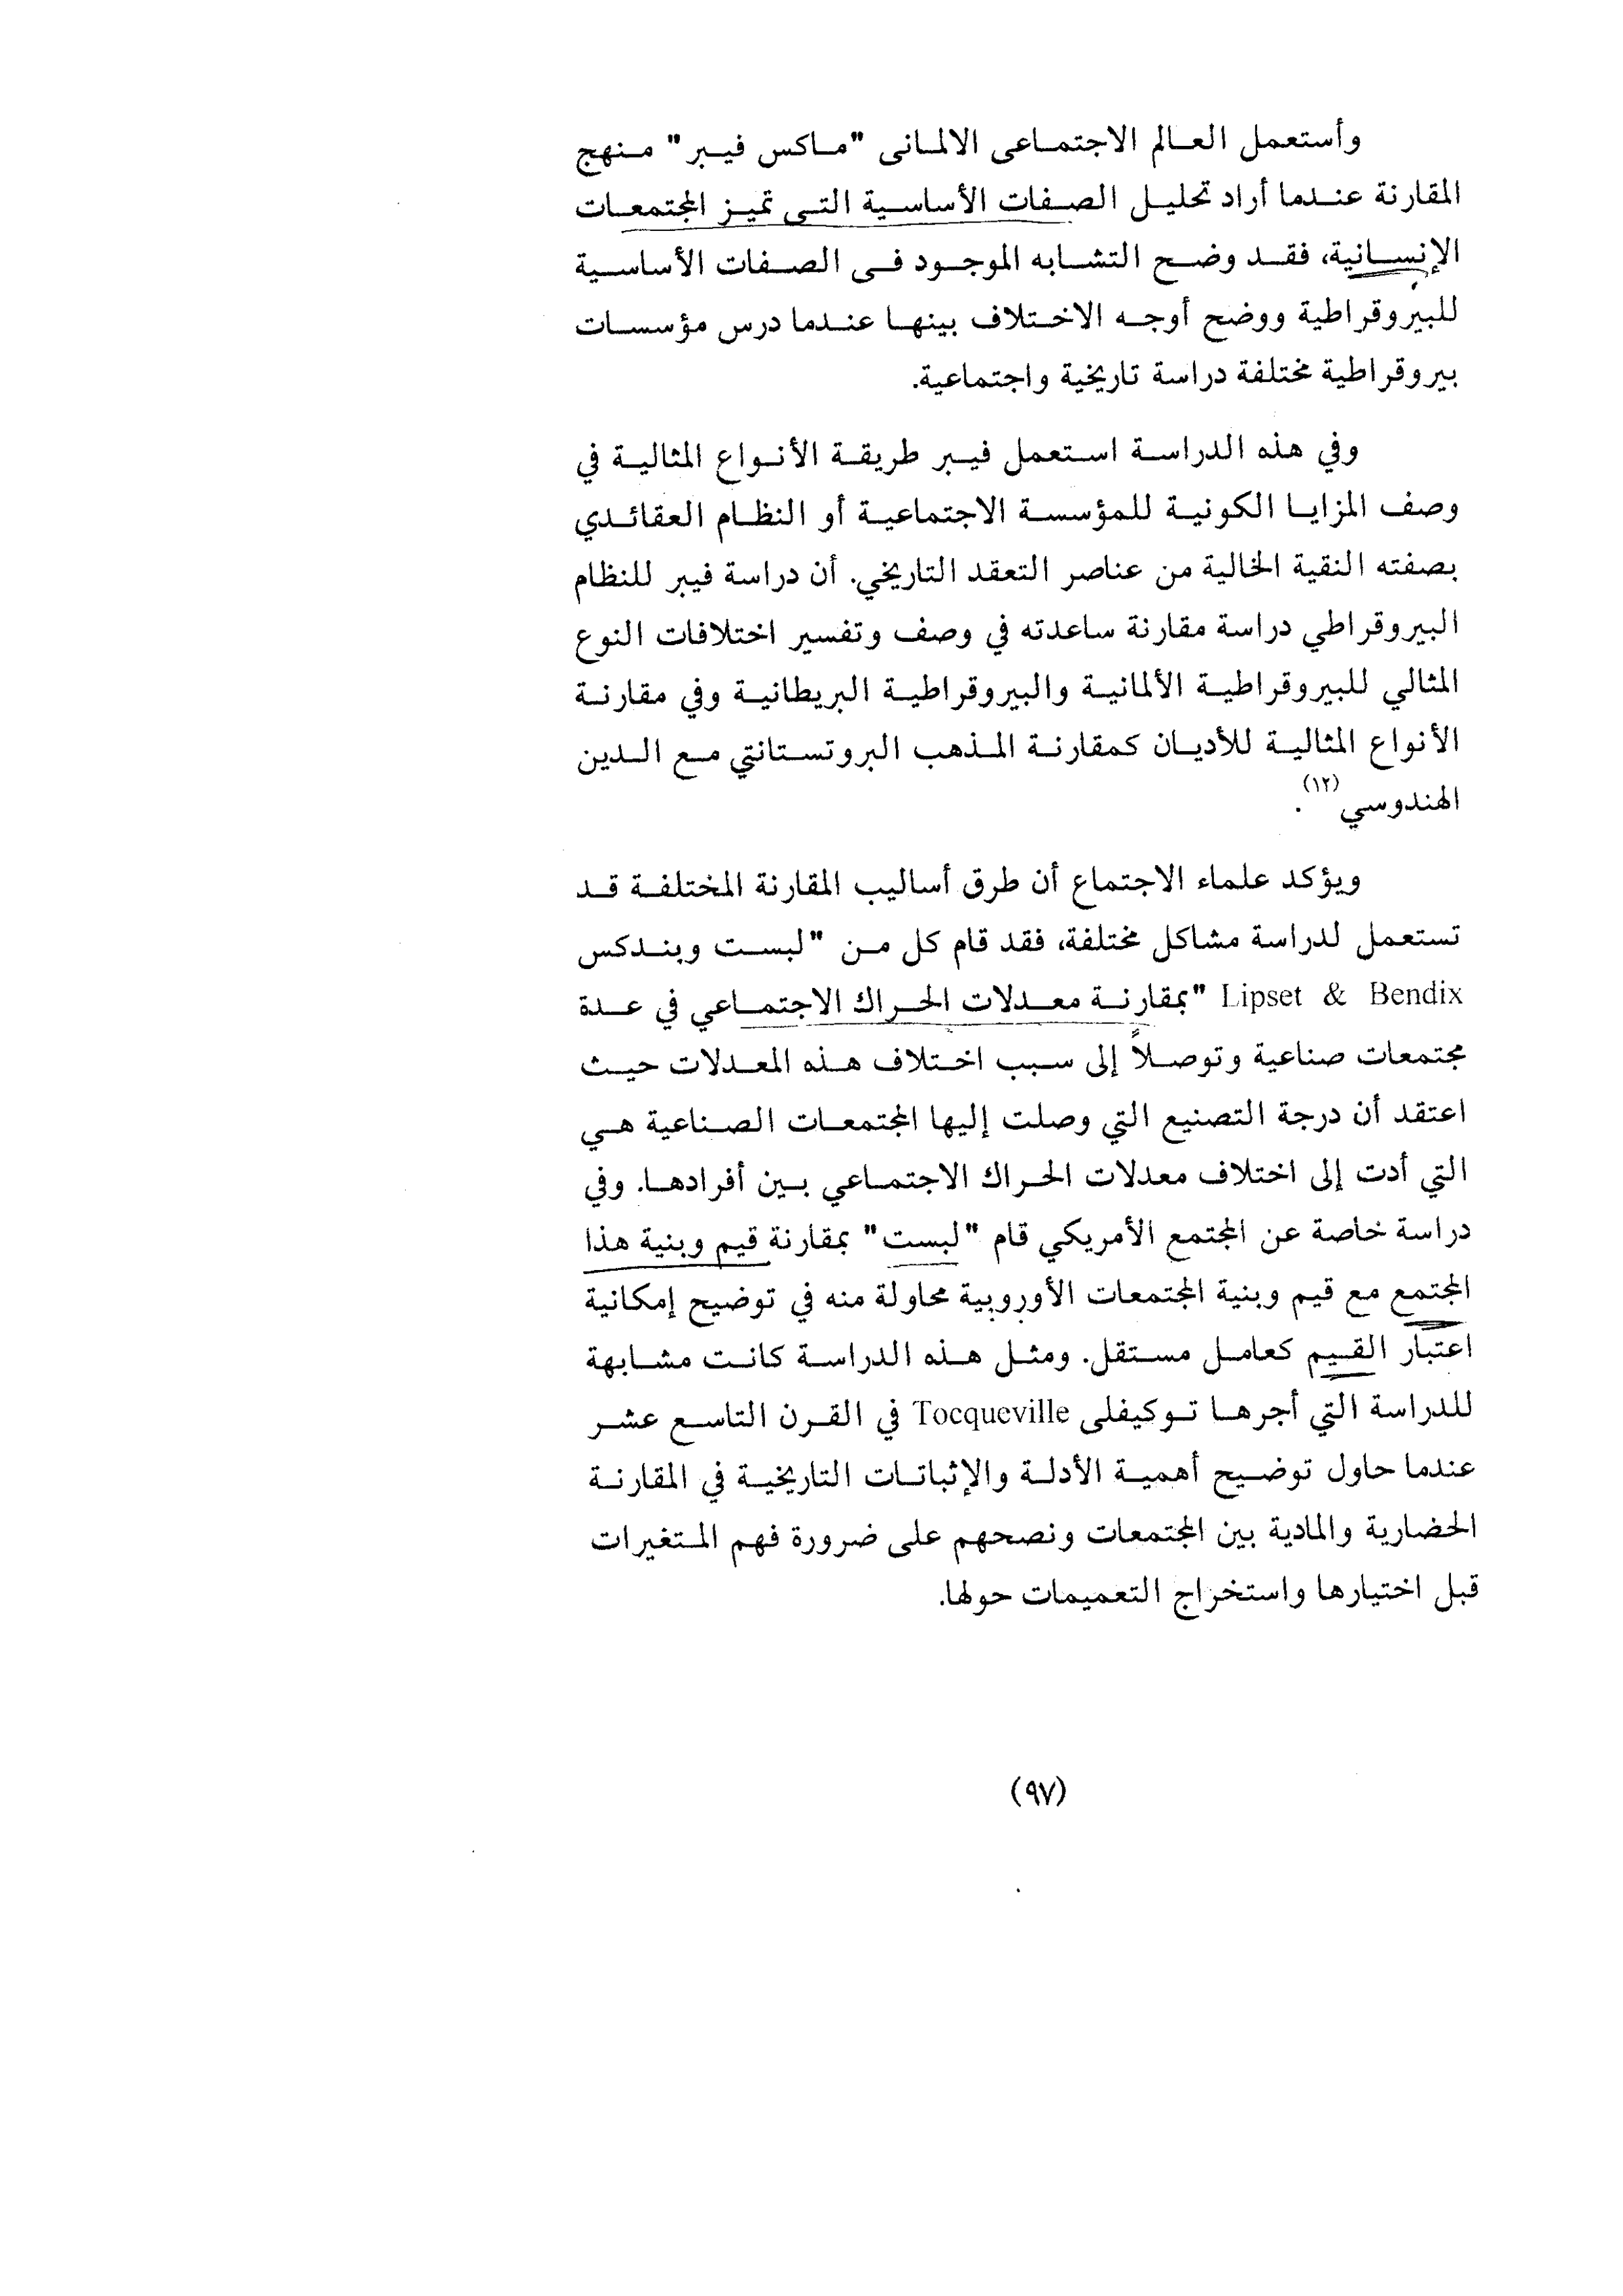 وأستعمل العالم الاجتماعى الالمانى "ماكس فيبر" منهج
المقارنة عندما أراد تحليل الصفات الأساسية التى تميز المجتمعات
الإنسانية، فقد وضح التشابه الموجود فى الصفات الأساسية
للبيروقراطية ووضح أوجه الاختلاف بينها عندما درس مؤسسات
بيروقراطية مختلفة دراسة تاريخية واجتماعية.
وفي هذه الدراسة استعمل فيبر طريقة الأنواع المثالية في
وصف المزايا الكونية للمؤسسة الاجتماعية أو النظام العقائدي
بصفته النقية الخالية من عناصر التعقد التاريخي. أن دراسة فيبر للنظام
البيروقراطي دراسة مقارنة ساعدته في وصف وتفسير اختلافات النوع
المثالي للبيروقراطية الألمانية والبيروقراطية البريطانية وفي مقارنة
الأنواع المثالية للأديان كمقارنة المذهب البروتستانتي مع الدين
الهندوسي(١٢).
ويؤكد علماء الاجتماع أن طرق أساليب المقارنة المختلفة قد
تستعمل لدراسة مشاكل مختلفة، فقد قام كل من "لبست وبندكس
Lipset & Bendix "بمقارنة معدلات الحراك الاجتماعي في عدة
مجتمعات صناعية وتوصلاً إلى سبب اختلاف هذه المعدلات حيث
اعتقد أن درجة التصنيع التي وصلت إليها المجتمعات الصناعية هي
التي أدت إلى اختلاف معدلات الحراك الاجتماعي بين أفرادها. وفي
دراسة خاصة عن المجتمع الأمريكي قام "لبست" بمقارنة قيم وبنية هذا
المجتمع مع قيم وبنية المجتمعات الأوروبية محاولة منه في توضيح إمكانية
اعتبار القيم كعامل مستقل. ومثل هذه الدراسة كانت مشابهة
للدراسة التي أجرها توكيفلى Tocqueville في القرن التاسع عشر
عندما حاول توضيح أهمية الأدلة والإثباتات التاريخية في المقارنة
الحضارية والمادية بين المجتمعات ونصحهم على ضرورة فهم المتغيرات
قبل اختيارها واستخراج التعميمات حولها.
(٩٧)